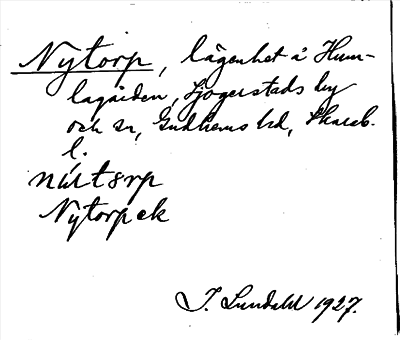 Nytorp, lägenhet å Hum-
lagården, Sjogerstads by
och sn, Gudhems hd, Skarab.
l.
Nytorp ek
I. Lundahl 1927.